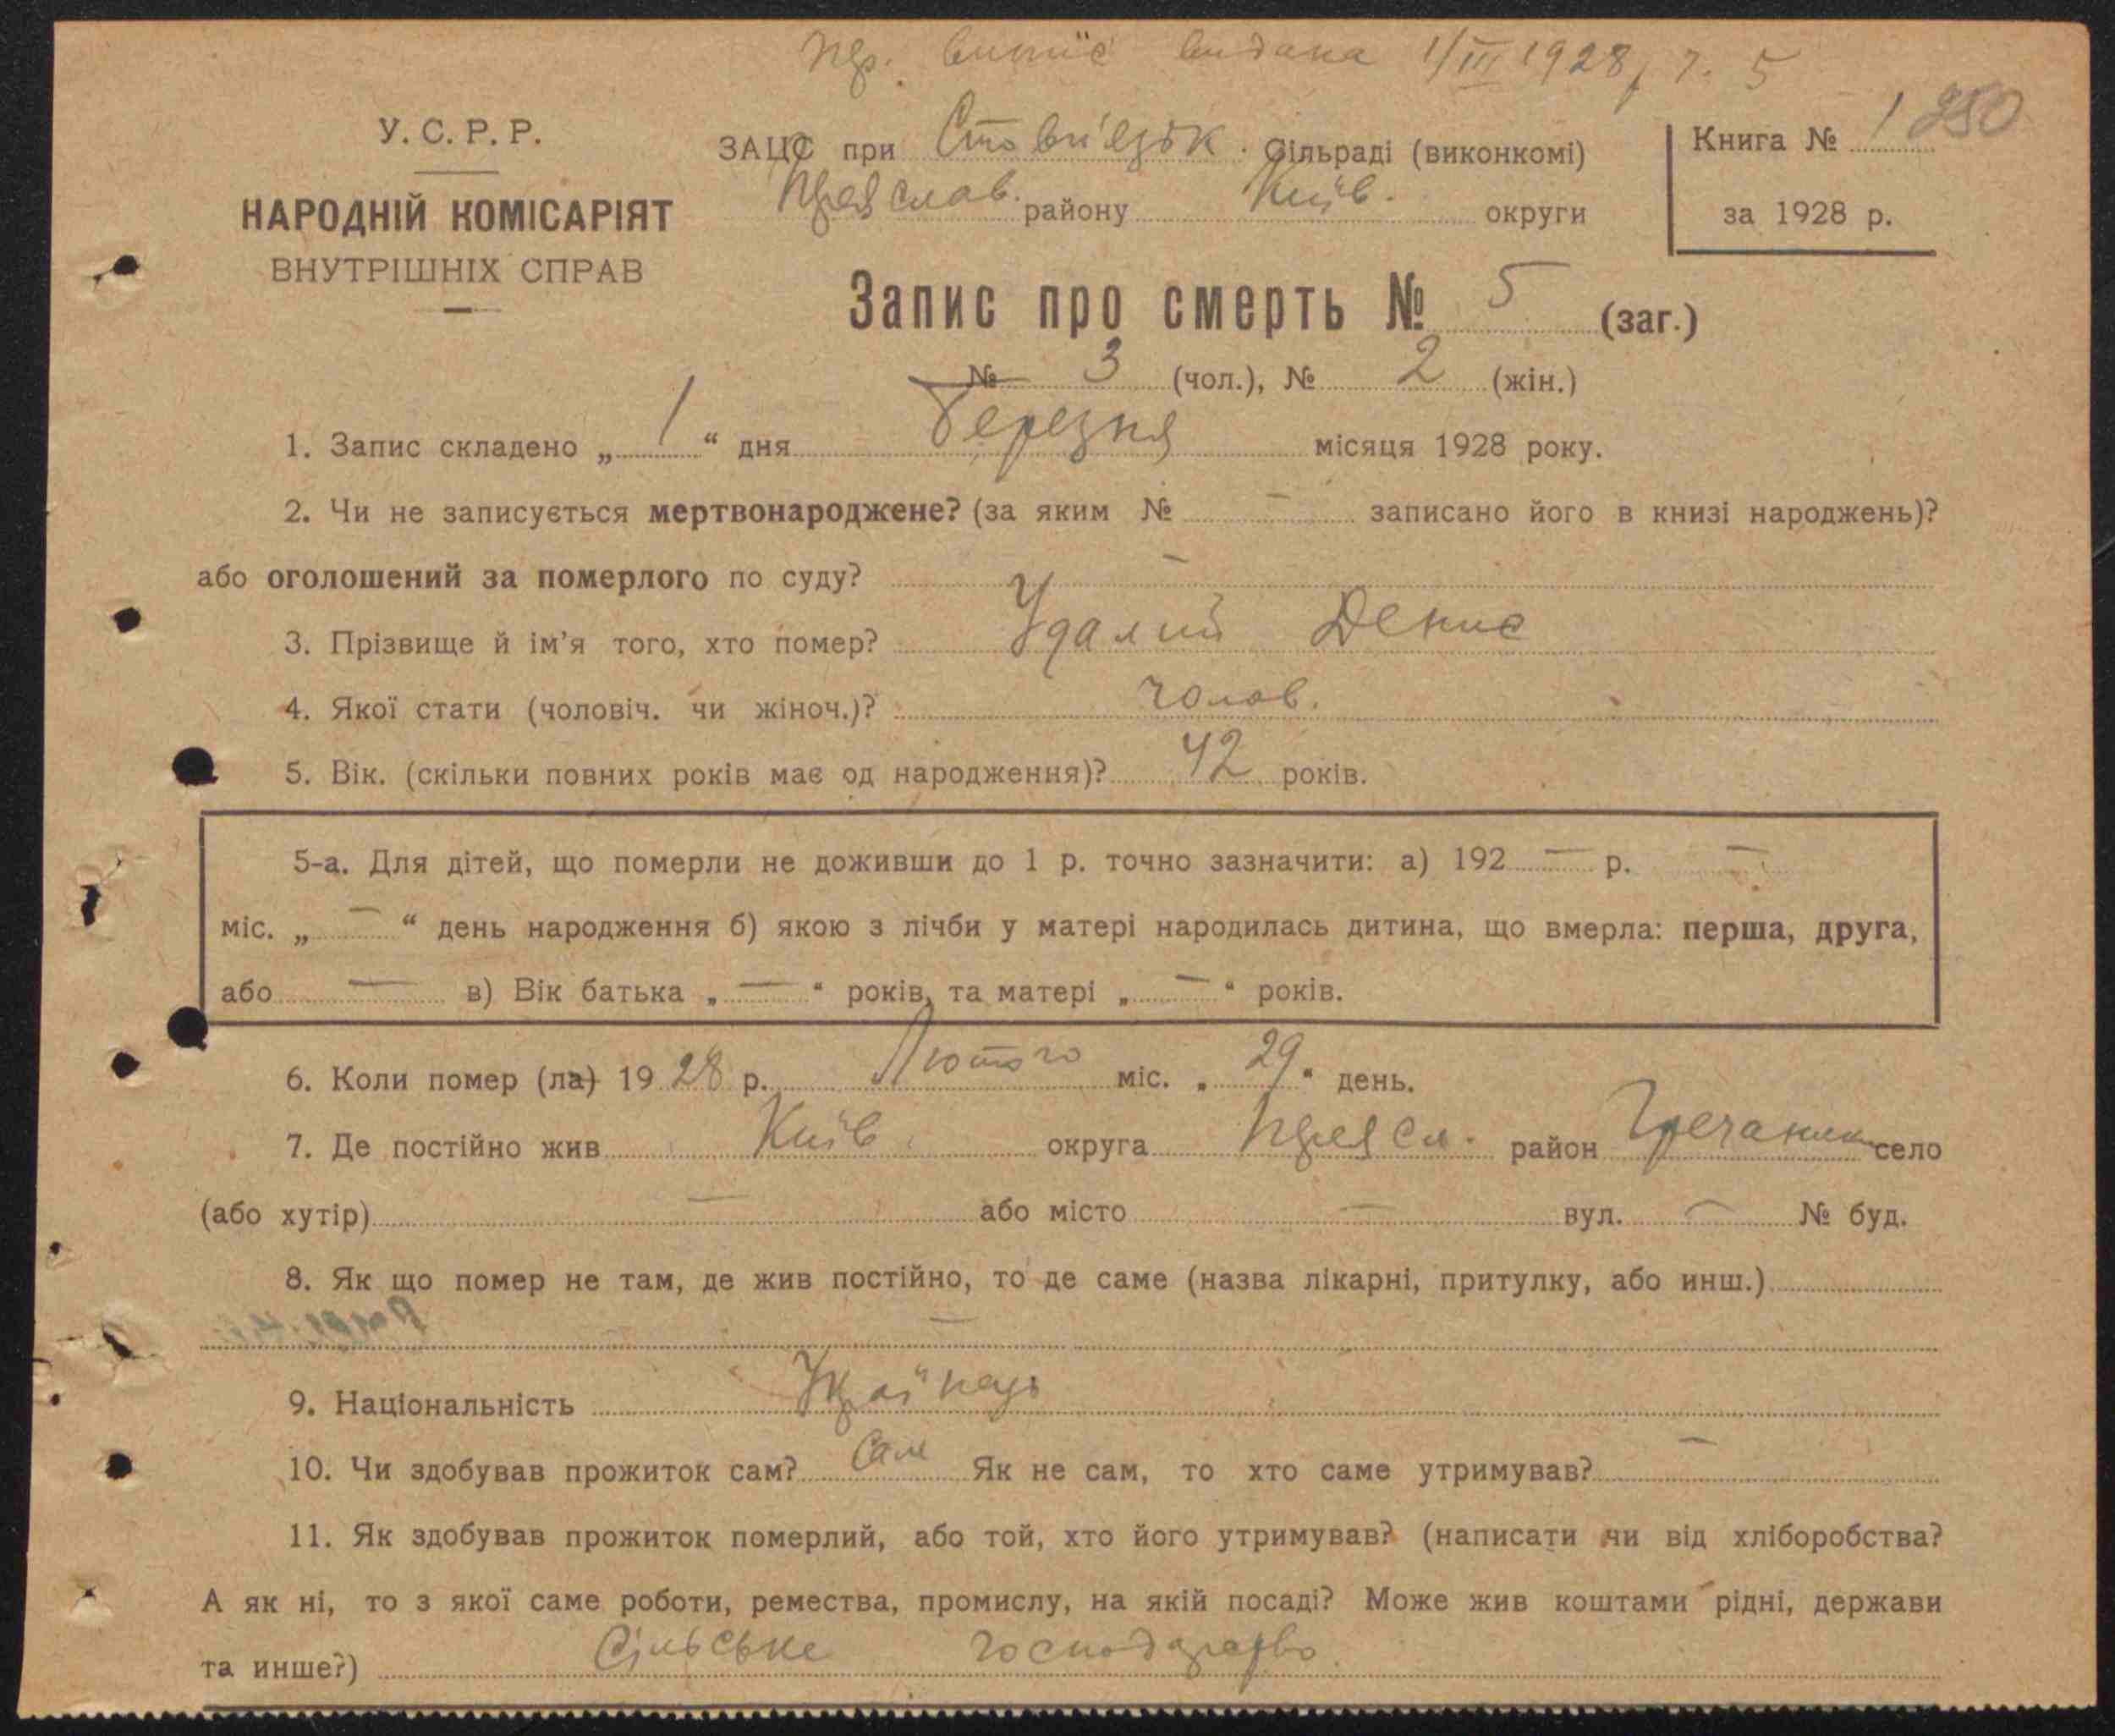 випис видана 1/III 1928 р. ч. 5
У. С. Р. Р.
НАРОДНІЙ КОМІСАРІЯТ
ВНУТРІШНІХ СПРАВ
ЗАЦС при Сільраді (виконкомі)
району Київ. округи
Книга № 1 250
за 1928 р.
Запис про смерть № 5 (заг.)
№ 3 (чол.), № 2 (жін.)
1. Запис складено „ 1 “ дня Березня місяця 1928 року.
2. Чи не записується мертвонароджене? (за яким № — записано його в книзі народжень)?
або оголошений за померлого по суду? —
3. Прізвище й ім’я того, хто помер? Удалий Денис
4. Якої стати (чоловіч. чи жіноч.)? чолов.
5. Вік. (скільки повних років має од народження)? 42 років.
5-а. Для дітей, що померли не доживши до 1 р. точно зазначити: а) 192 — р. —
міс. „ — “ день народження б) якою з лічби у матері народилась дитина, що вмерла: перша, друга,
або — в) Вік батька „ — “ років, та матері „ — “ років.
6. Коли помер (ла) 19 28 р. Лютого міс. „ 29 “ день.
7. Де постійно жив Київ. округа Переясл. район Гречаники село
(або хутір) — або місто — вул. — № буд.
8. Як що помер не там, де жив постійно, то де саме (назва лікарні, притулку, або инш.)
—
9. Національність Українець
10. Чи здобував прожиток сам? Сам Як не сам, то хто саме утримував? —
11. Як здобував прожиток померлий, або той, хто його утримував? (написати чи від хліборобства?
А як ні, то з якої саме роботи, ремества, промислу, на якій посаді? Може жив коштами рідні, держави
та инше?) Сільське господарство.